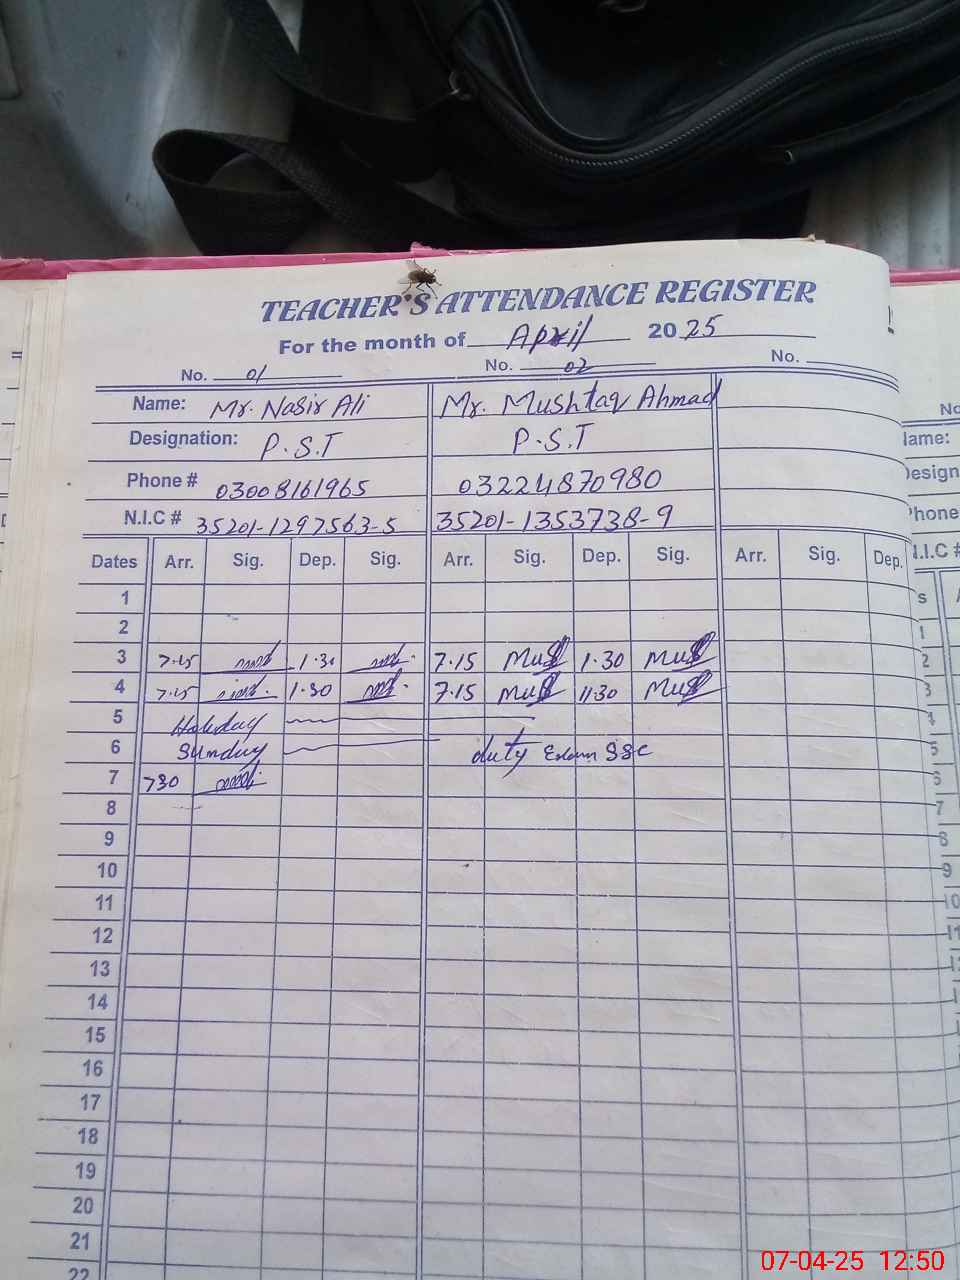 TEACHER'S ATTENDANCE REGISTER
For the month of April 2025
No. 01 No. 02 No.
Name: Mr. Nasir Ali Mr. Mushtaq Ahmad
Designation: P.S.T P.S.T
Phone # 03008161965 03224870980
N.I.C # 35201-1297563-5 35201-1353738-9
Dates Arr. Sig. Dep. Sig. Arr. Sig. Dep. Sig. Arr. Sig. Dep.
1
2
3 7.15 1.30 7.15 1.30
4 7.15 1.30 7.15 11.30
5 Holiday
6 Sunday duty Exam SSC
7 730
8
9
10
11
12
13
14
15
16
17
18
19
20
21
22
No
Name:
Design
Phone
N.I.C #
s
1
2
3
4
5
6
7
8
9
10
11
07-04-25 12:50